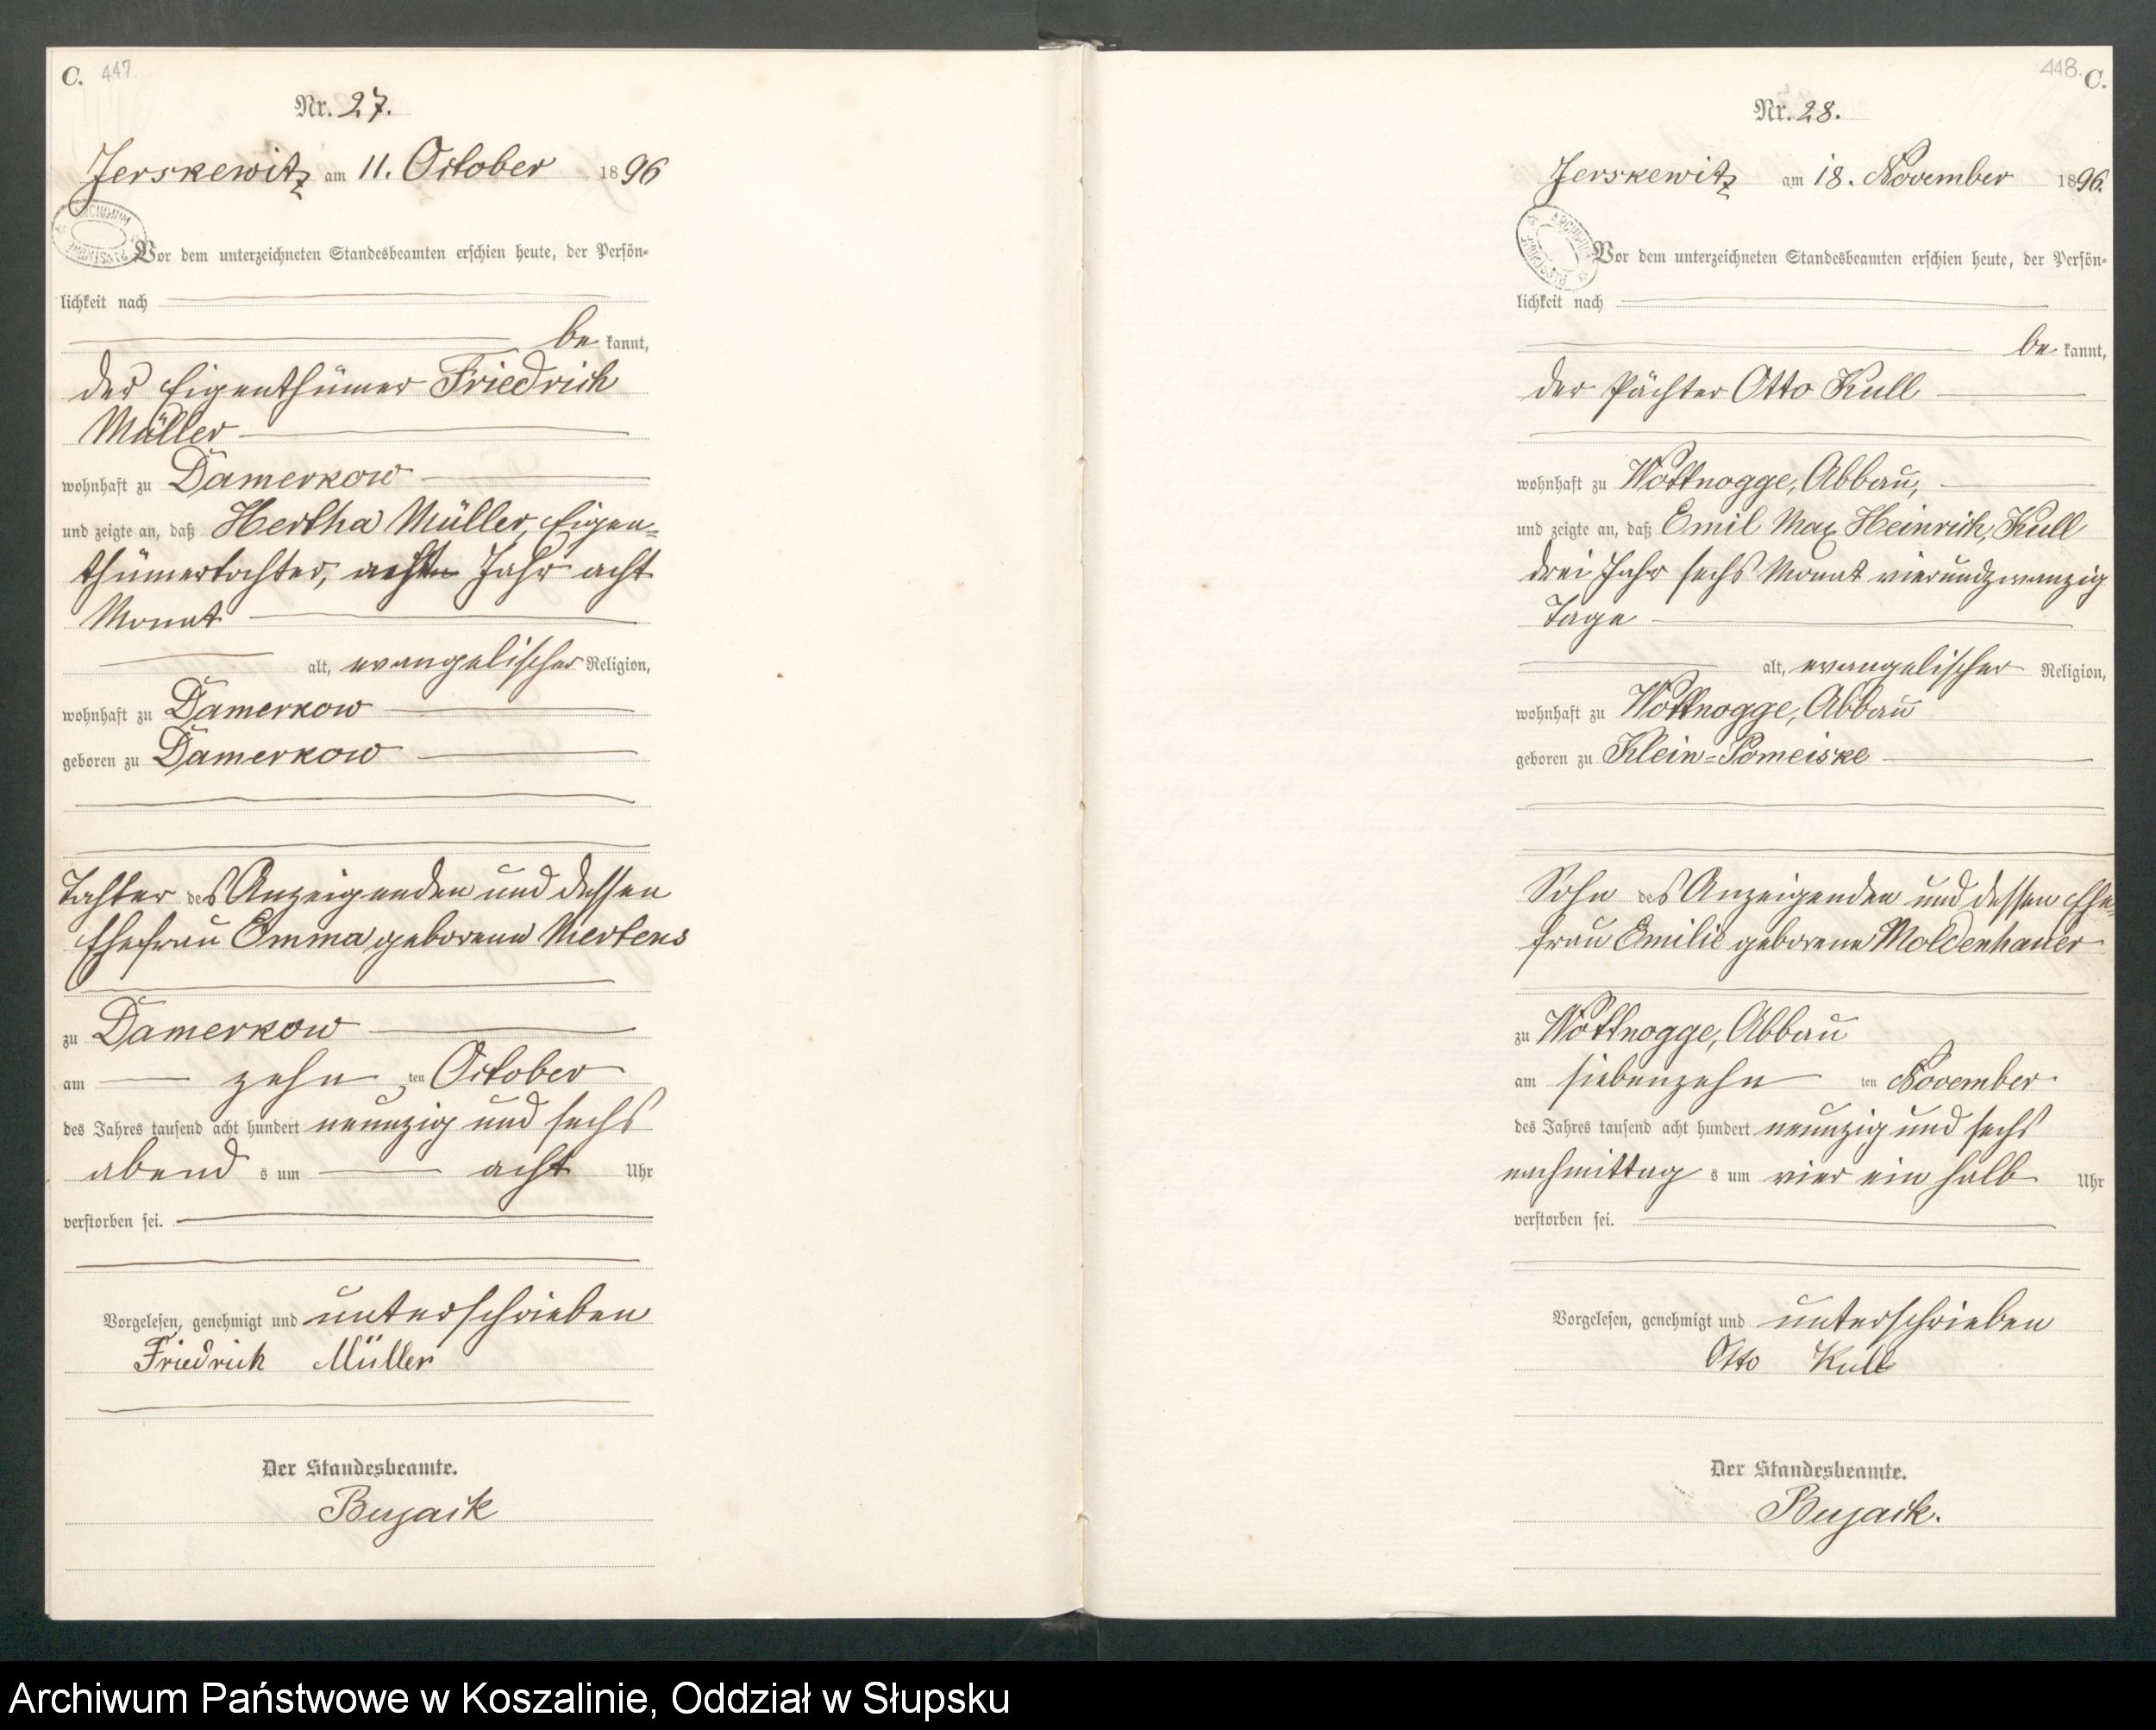 C. 447.
Nr. 27.
Jerskewitz am 11. October 1896
Vor dem unterzeichneten Standesbeamten erschien heute, der Persön-
lichkeit nach
be kannt,
der Eigenthümer Friedrich
Müller
wohnhaft zu Damerkow
und zeigte an, daß Hertha Müller, Eigen-
thümertochter, acht Jahr acht
Monat
alt, evangelischer Religion,
wohnhaft zu Damerkow
geboren zu Damerkow
Tochter des Anzeigenden und dessen
Ehefrau Emma geborene Mertens
zu Damerkow
am zehn ten October
des Jahres tausend acht hundert neunzig und sechs
abend s um acht Uhr
verstorben sei.
Vorgelesen, genehmigt und unterschrieben
Friedrich Müller
Der Standesbeamte.
Bujack
448. C.
Nr. 28.
Jerskewitz am 18. November 1896.
ARCHIWUM PAŃSTWOWE
Vor dem unterzeichneten Standesbeamten erschien heute, der Persön-
lichkeit nach
be kannt,
der Pächter Otto Kull
wohnhaft zu Wottnogge, Abbau,
und zeigte an, daß Emil Max Heinrich, Kull
drei Jahr sechs Monat vierundzwanzig
Tage
alt, evangelischer Religion,
wohnhaft zu Wottnogge, Abbau
geboren zu Klein-Pomeiske
Sohn des Anzeigenden und dessen Ehe-
frau Emilie geborene Moldenhauer
zu Wottnogge, Abbau
am siebenzehn ten November
des Jahres tausend acht hundert neunzig und sechs
nachmittag s um vier ein halb Uhr
verstorben sei.
Vorgelesen, genehmigt und unterschrieben
Otto Kull
Der Standesbeamte.
Bujack.
Archiwum Państwowe w Koszalinie, Oddział w Słupsku